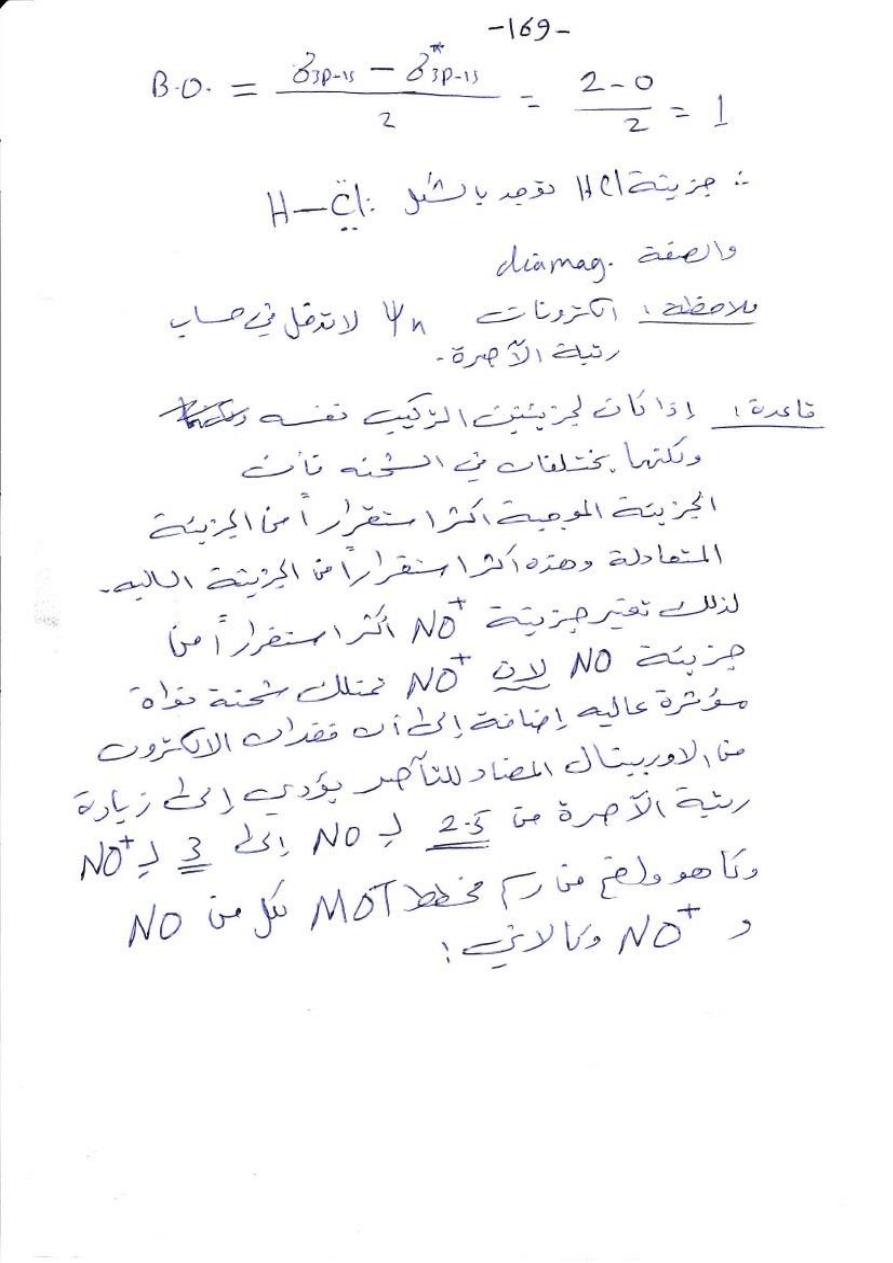 -169-
B.O. = (δ3p-1s − δ*3p-1s) / 2 = (2-0) / 2 = 1
∴ جزيئة HCl توجد بالشكل H–Cl:
والصفة diamag.
ملاحظة: الكترونات Ψn لا تدخل في حساب
رتبة الآصرة.
قاعدة: إذا كان لجزيئتين التركيب نفسه
ولكنهما يختلفان في الشحنه فأن
الجزيئة الموجبة اكثر استقراراً من الجزيئة
المتعادلة وهذه اكثر استقراراً من الجزيئة السالبه.
لذلك تعتبر جزيئة NO⁺ أكثر استقراراً من
جزيئة NO لان NO⁺ تمتلك شحنة نواة
مؤثرة عاليه إضافة إلى أن فقدان الالكترون
من الاوربيتال المضاد للتآصر يؤدي إلى زيادة
رتبة الآصرة من 2.5 لـ NO إلى 3 لـ NO⁺
وكما هو واضح من رسم مخطط MOT لكل من NO
و NO⁺ وكالاتي: